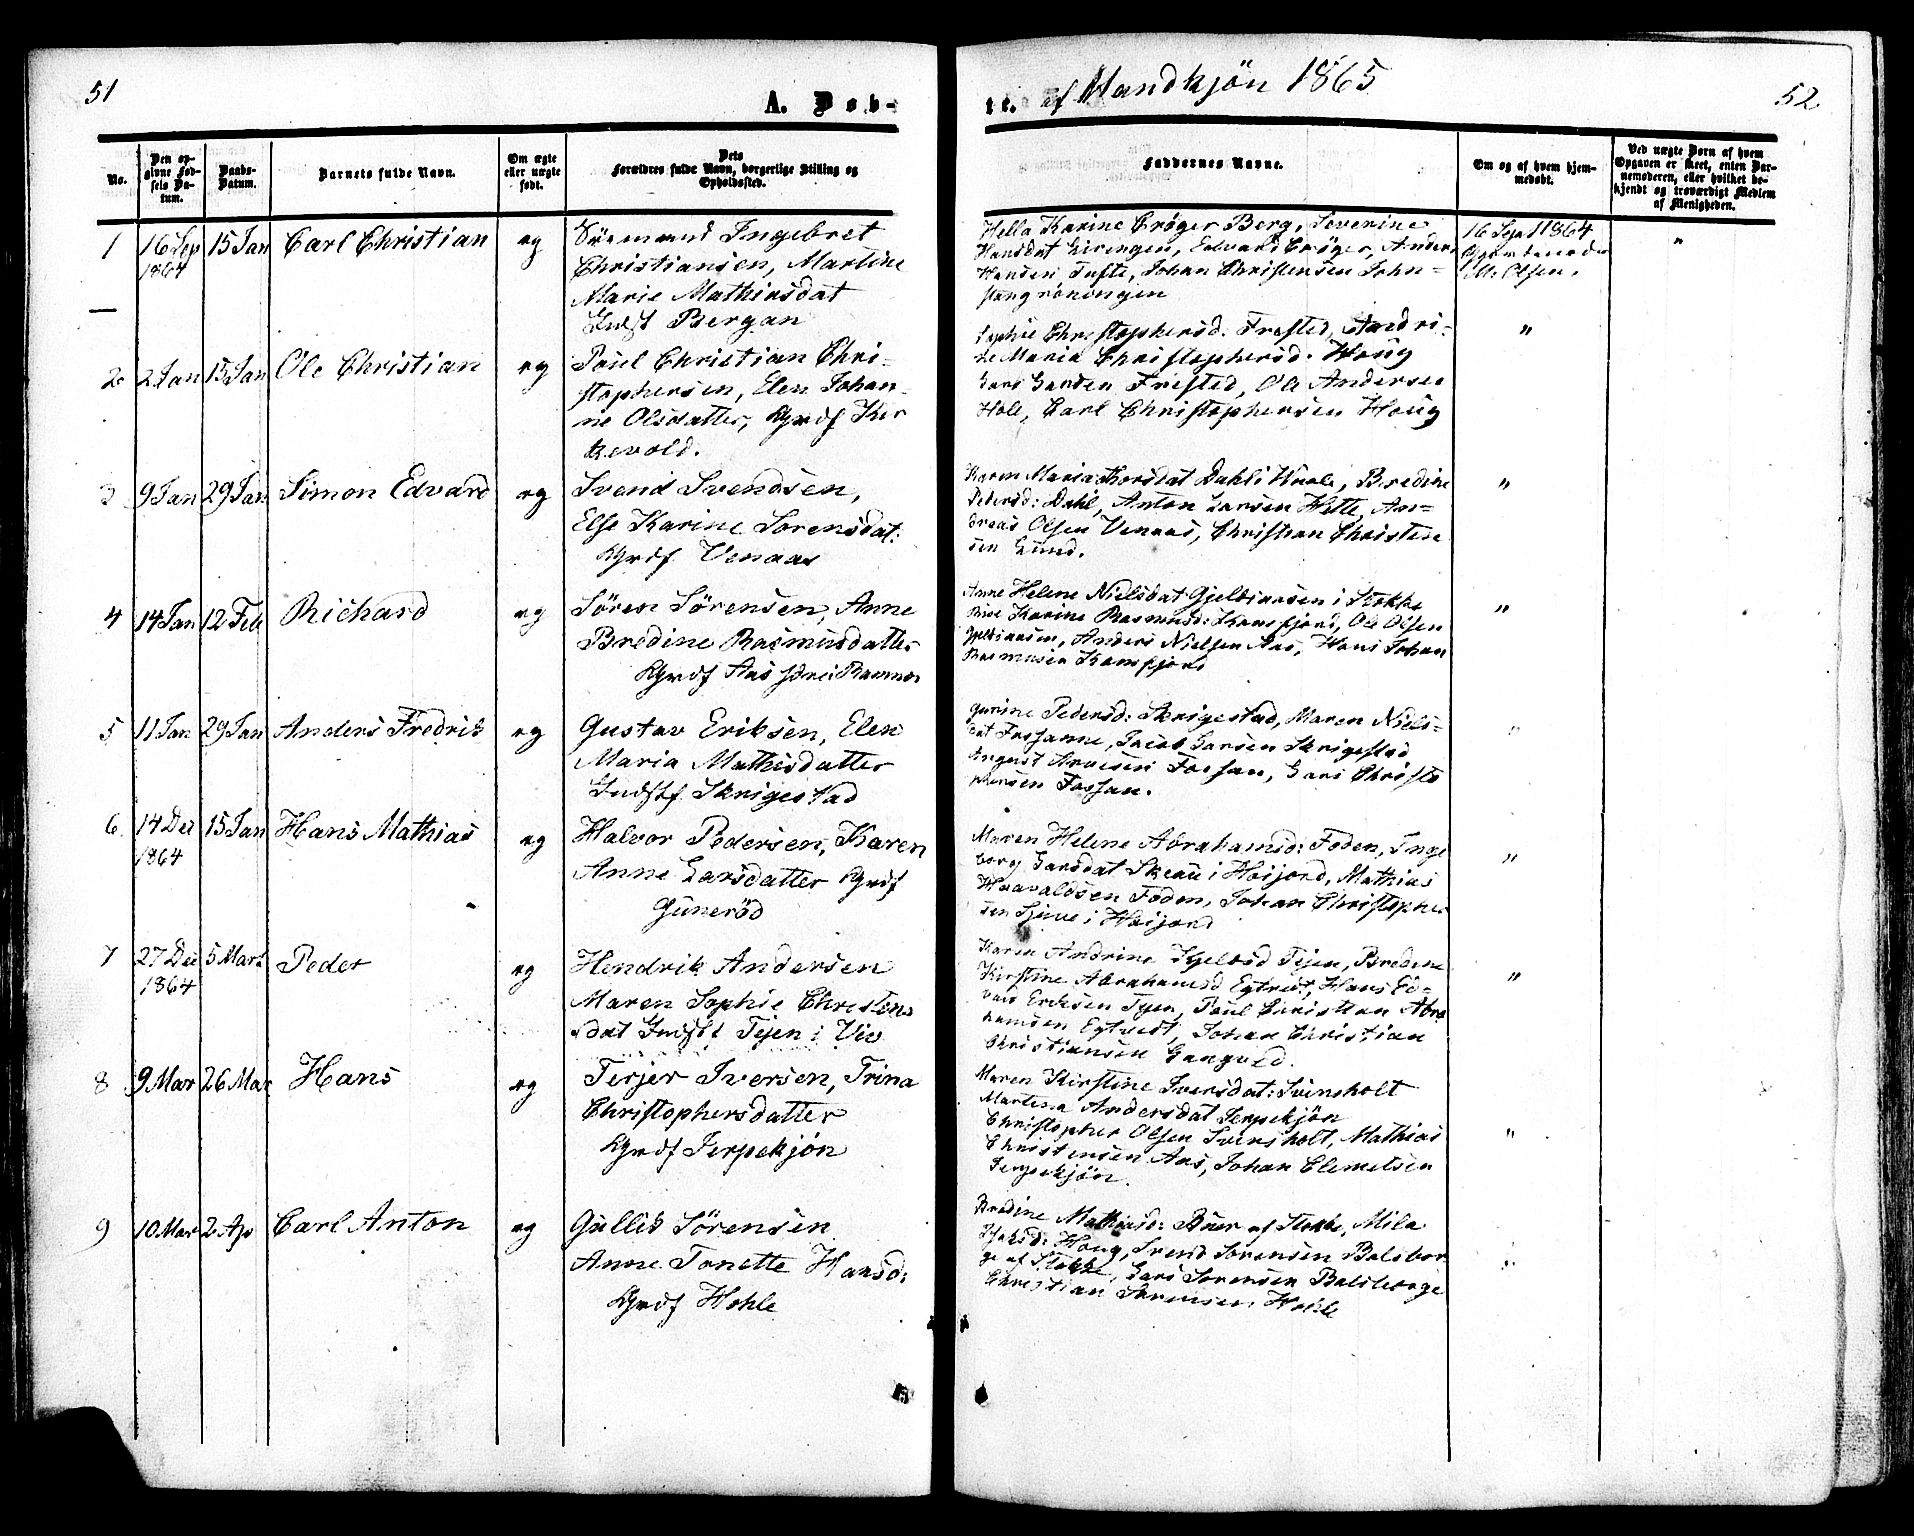 51
A. Døb-
te. af Mandkjön 1865
52
No.
Den op-
givne Fød-
sels Da-
tum.
Daabs-
Datum.
Barnets fulde Navn.
Om ægte
eller uægte
født.
Dets
Forældres fulde Navn, borgerlige Stilling og
Opholdssted.
Faddernes Navne.
Om og af hvem hjem-
medøbt.
Ved uægte Børn af hvem
Opgaven er skeet, enten Bar-
nemoderen, eller hvilket be-
kjendt og troværdigt Medlem
af Menigheden.
1
16 Sep
1864
15 Jan
Carl Christian
eg
Ingebret
Christiansen, Martine
Marie Mathiasdat
Indst Bergan
Hella Karine Cröger Berg, Severine
Hansdat Edvard Cröger, Anders
Hansen Tufte, Johan Christensen John-
16 Sep 1864
M. Olsen.
"
2
2 Jan
15 Jan
Ole Christian
eg
Poul Christian Chri-
stophersen, Elen Johan-
ne Olsdatter, Gbrdf Kir
kevold.
Sophie Christophersd. Frested, Andri-
ne Maria Christophersd. Houg
Lars Larsen Frested, Ole Andersen
Hole, Carl Christophersen Houg
"
3
9 Jan
29 Jan
Simon Edvard
eg
Svend Svendsen,
Else Karine Sorensdat:
Gbrdf Venaas
Karen Maria Thorsdat Dahl i Bredine
Petersd: Dahl, Anton Larsen An-
dreas Olsen Venaas, Christian Christen
sen Lund.
"
4
14 Jan
12 Feb
Richard
eg
Sören Sörensen, Anne
Bredine Rasmusdatter
Gbrdf Aas Ramnes
Anne Helene Nielsdat i Stokke
Karine Rasmusd: Ole Olsen
Anders Nielsen Aas, Hans Johan
Rasmusen
"
5
11 Jan
29 Jan
Anders Fredrik
eg
Gustav Eriksen, Elen
Maria Mathisdatter
Indstf Skrigestad
Pedersd: Skrigestad, Maren Niels-
dat Fossanne, Jacob Larsen Skrigestad
August Fossan, Lars Christo
phersen Fossan.
"
6
14 Dec
1864
15 Jan
Hans Mathias
eg
Halvor Pedersen, Karen
Anne Larsdatter Gbrdf
Gunerød
Maren Helene Abrahamsd: Foden, Inge
borg Larsdat Skeau i Höijord, Mathias
Haavaldsen Foden, Johan Christopher
sen i Höijord
"
7
27 Dec
1864
5 Marts
Peder
eg
Hendrik Andersen
Maren Sophie Christens
dat Indst Tejen i Viv
Karen Andrine Tejen, Bredine
Kirstine Abrahamsd Egtvedt, Hans Ed-
vard Eriksen Tejen, Poul Christian Abra
hamsen Egtvedt, Johan Christian
Christiansen
"
8
9 Mar
26 Mar
Hans
eg
Terjer Iversen, Trina
Christophersdatter
Gbrdf Jerpekjön
Maren Kirstine Iversdat: Svensholt
Martina Andersdat Jerpekjön
Christopher Olsen Svensholt, Mathias
Christensen Aas, Johan Clemetsen
Jerpekjön.
"
9
10 Mar
2 Ap
Carl Anton
eg
Gullid Sörensen
Anne Tonette Hansd:
Gbrdf Hohle
Bredine Mathiasd: af Stokke, Mila
Houg, Svend Sorensen Balsbor-
ge af Stokke, Lars Sorensen Balsborge
Christian Sörensen Hohle
"